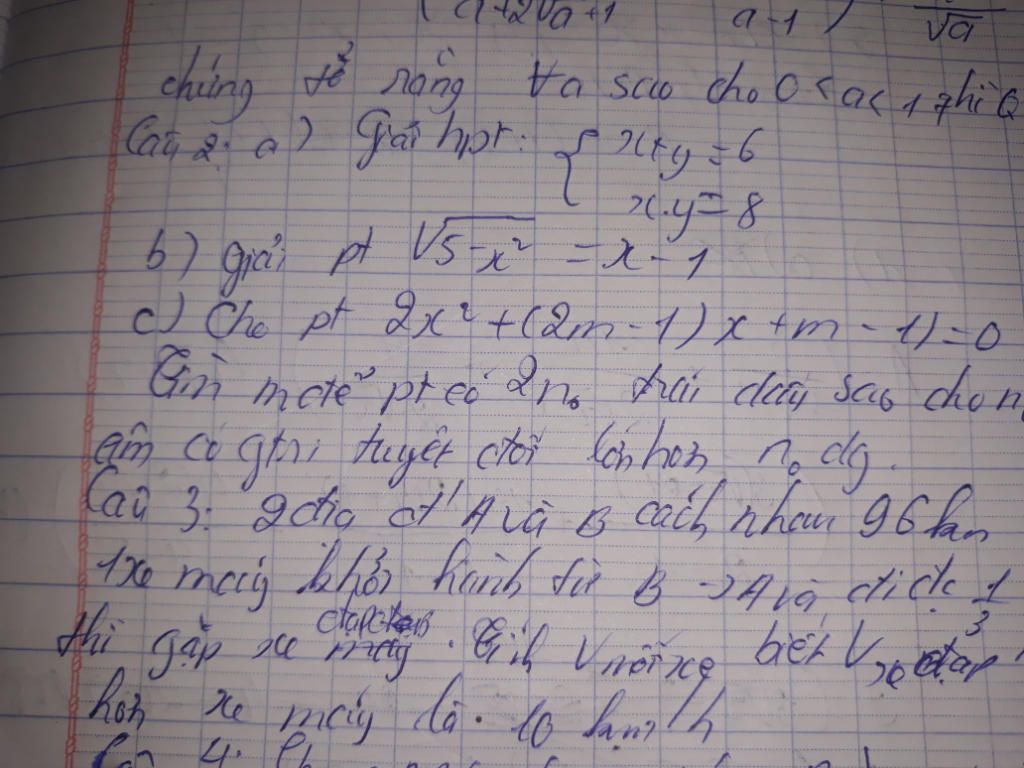 (a+2√a+1 a-1) √a
chứng tỏ rằng ∀a sao cho 0<a<1 thì Q
Câu 2: a) Giải hpt: { x+y=6
x.y=8
b) giải pt √5-x² = x-1
c) Cho pt 2x²+(2m-1)x+m-1)=0
Tìm m để pt có 2n₀ trái dấu sao cho n₀
âm có gtrị tuyệt đối lớn hơn n₀ dg.
Câu 3: 2 địa đ' A và B cách nhau 96 km
1 xe máy khởi hành từ B → A và đi đc 1/3
thì gặp xe đạp từ B. Tính V mỗi xe biết V xe đạp
hơn xe máy là 10 km/h
Câu 4: